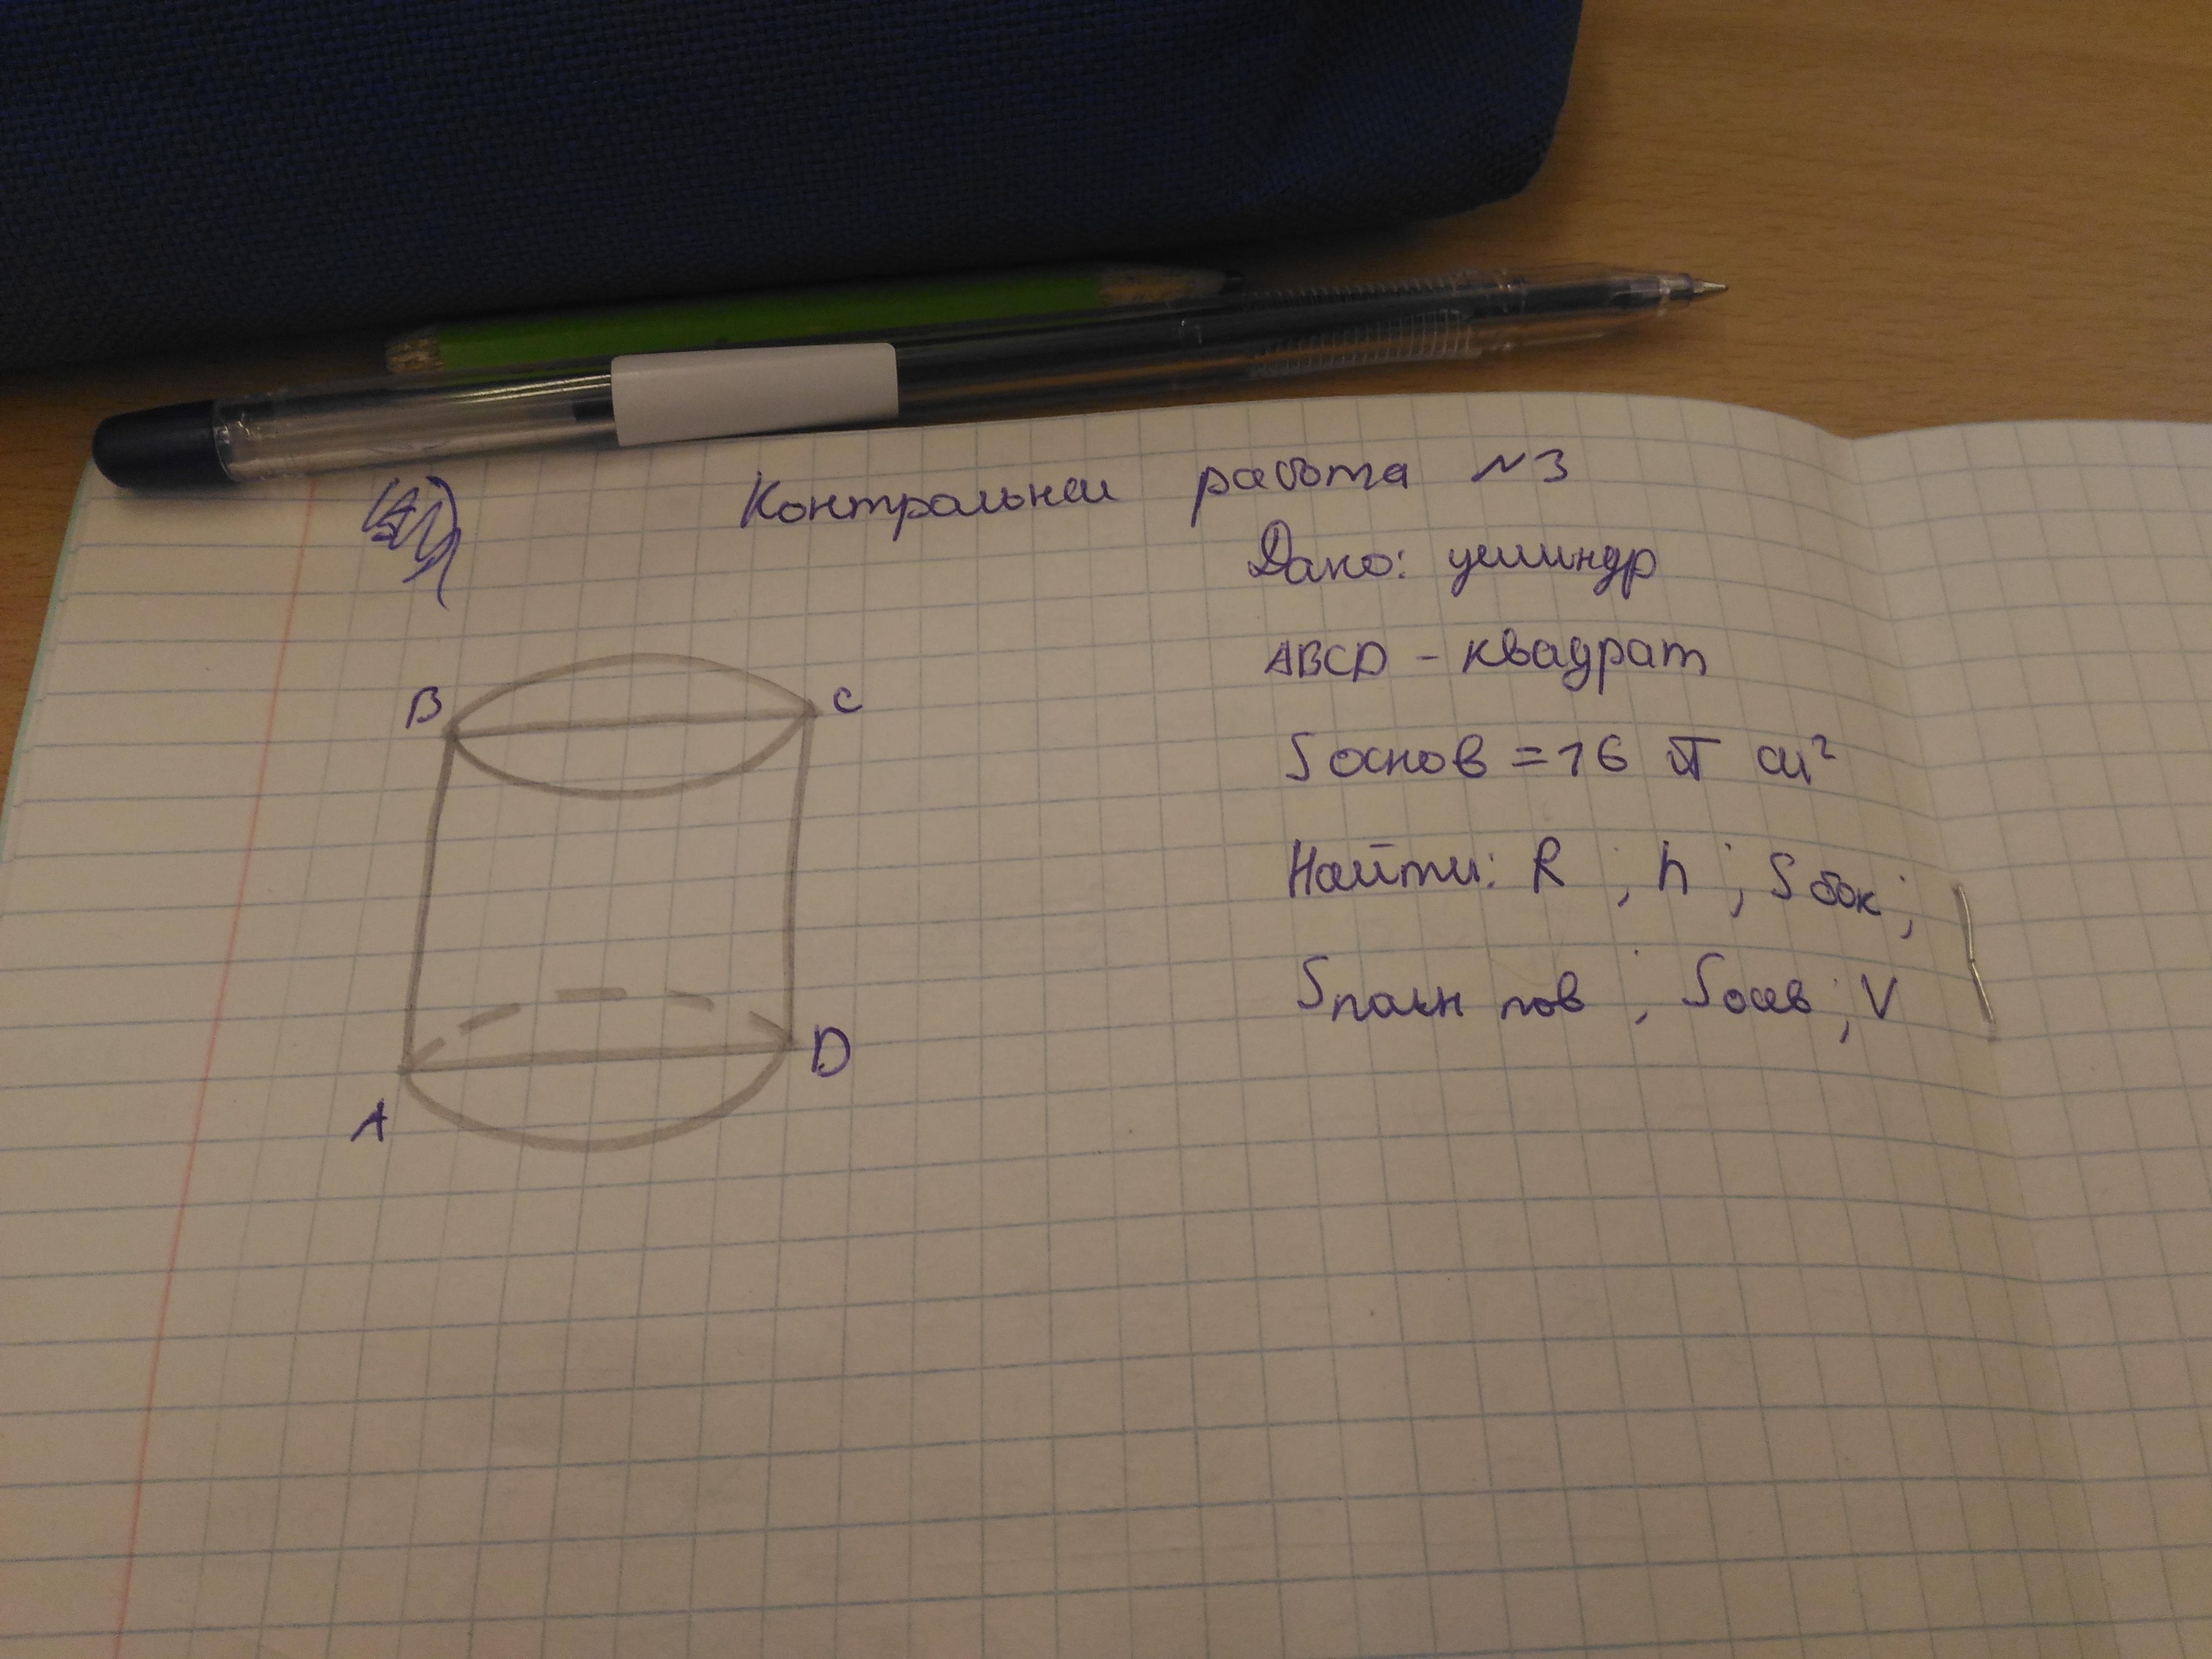 Контрольная работа №3
Дано: цилиндр
ABCD - квадрат
B
C
Sоснов = 16 π см²
Найти: R ; h ; Sбок ;
Sполн пов ; Sосев ; V
D
A